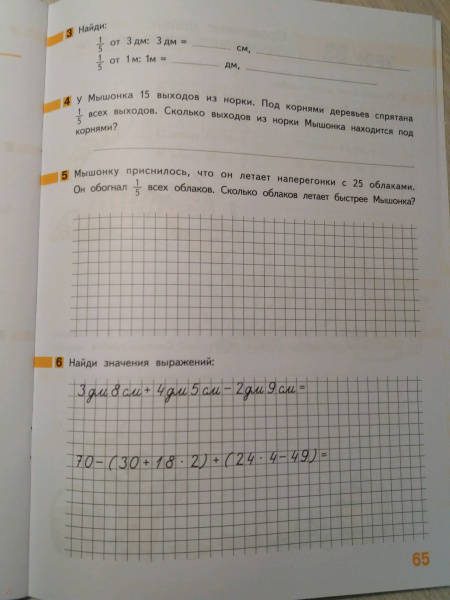 3 Найди:
1/5 от 3 дм: 3 дм = ________ см, ________________
1/5 от 1 м: 1 м = ________ дм, ________________
4 У Мышонка 15 выходов из норки. Под корнями деревьев спрятана
1/5 всех выходов. Сколько выходов из норки Мышонка находится под
корнями?
5 Мышонку приснилось, что он летает наперегонки с 25 облаками.
Он обогнал 1/5 всех облаков. Сколько облаков летает быстрее Мышонка?
6 Найди значения выражений:
3 дм 8 см + 4 дм 5 см − 2 дм 9 см =
70 − (30 + 18 · 2) + (24 · 4 − 49) =
65